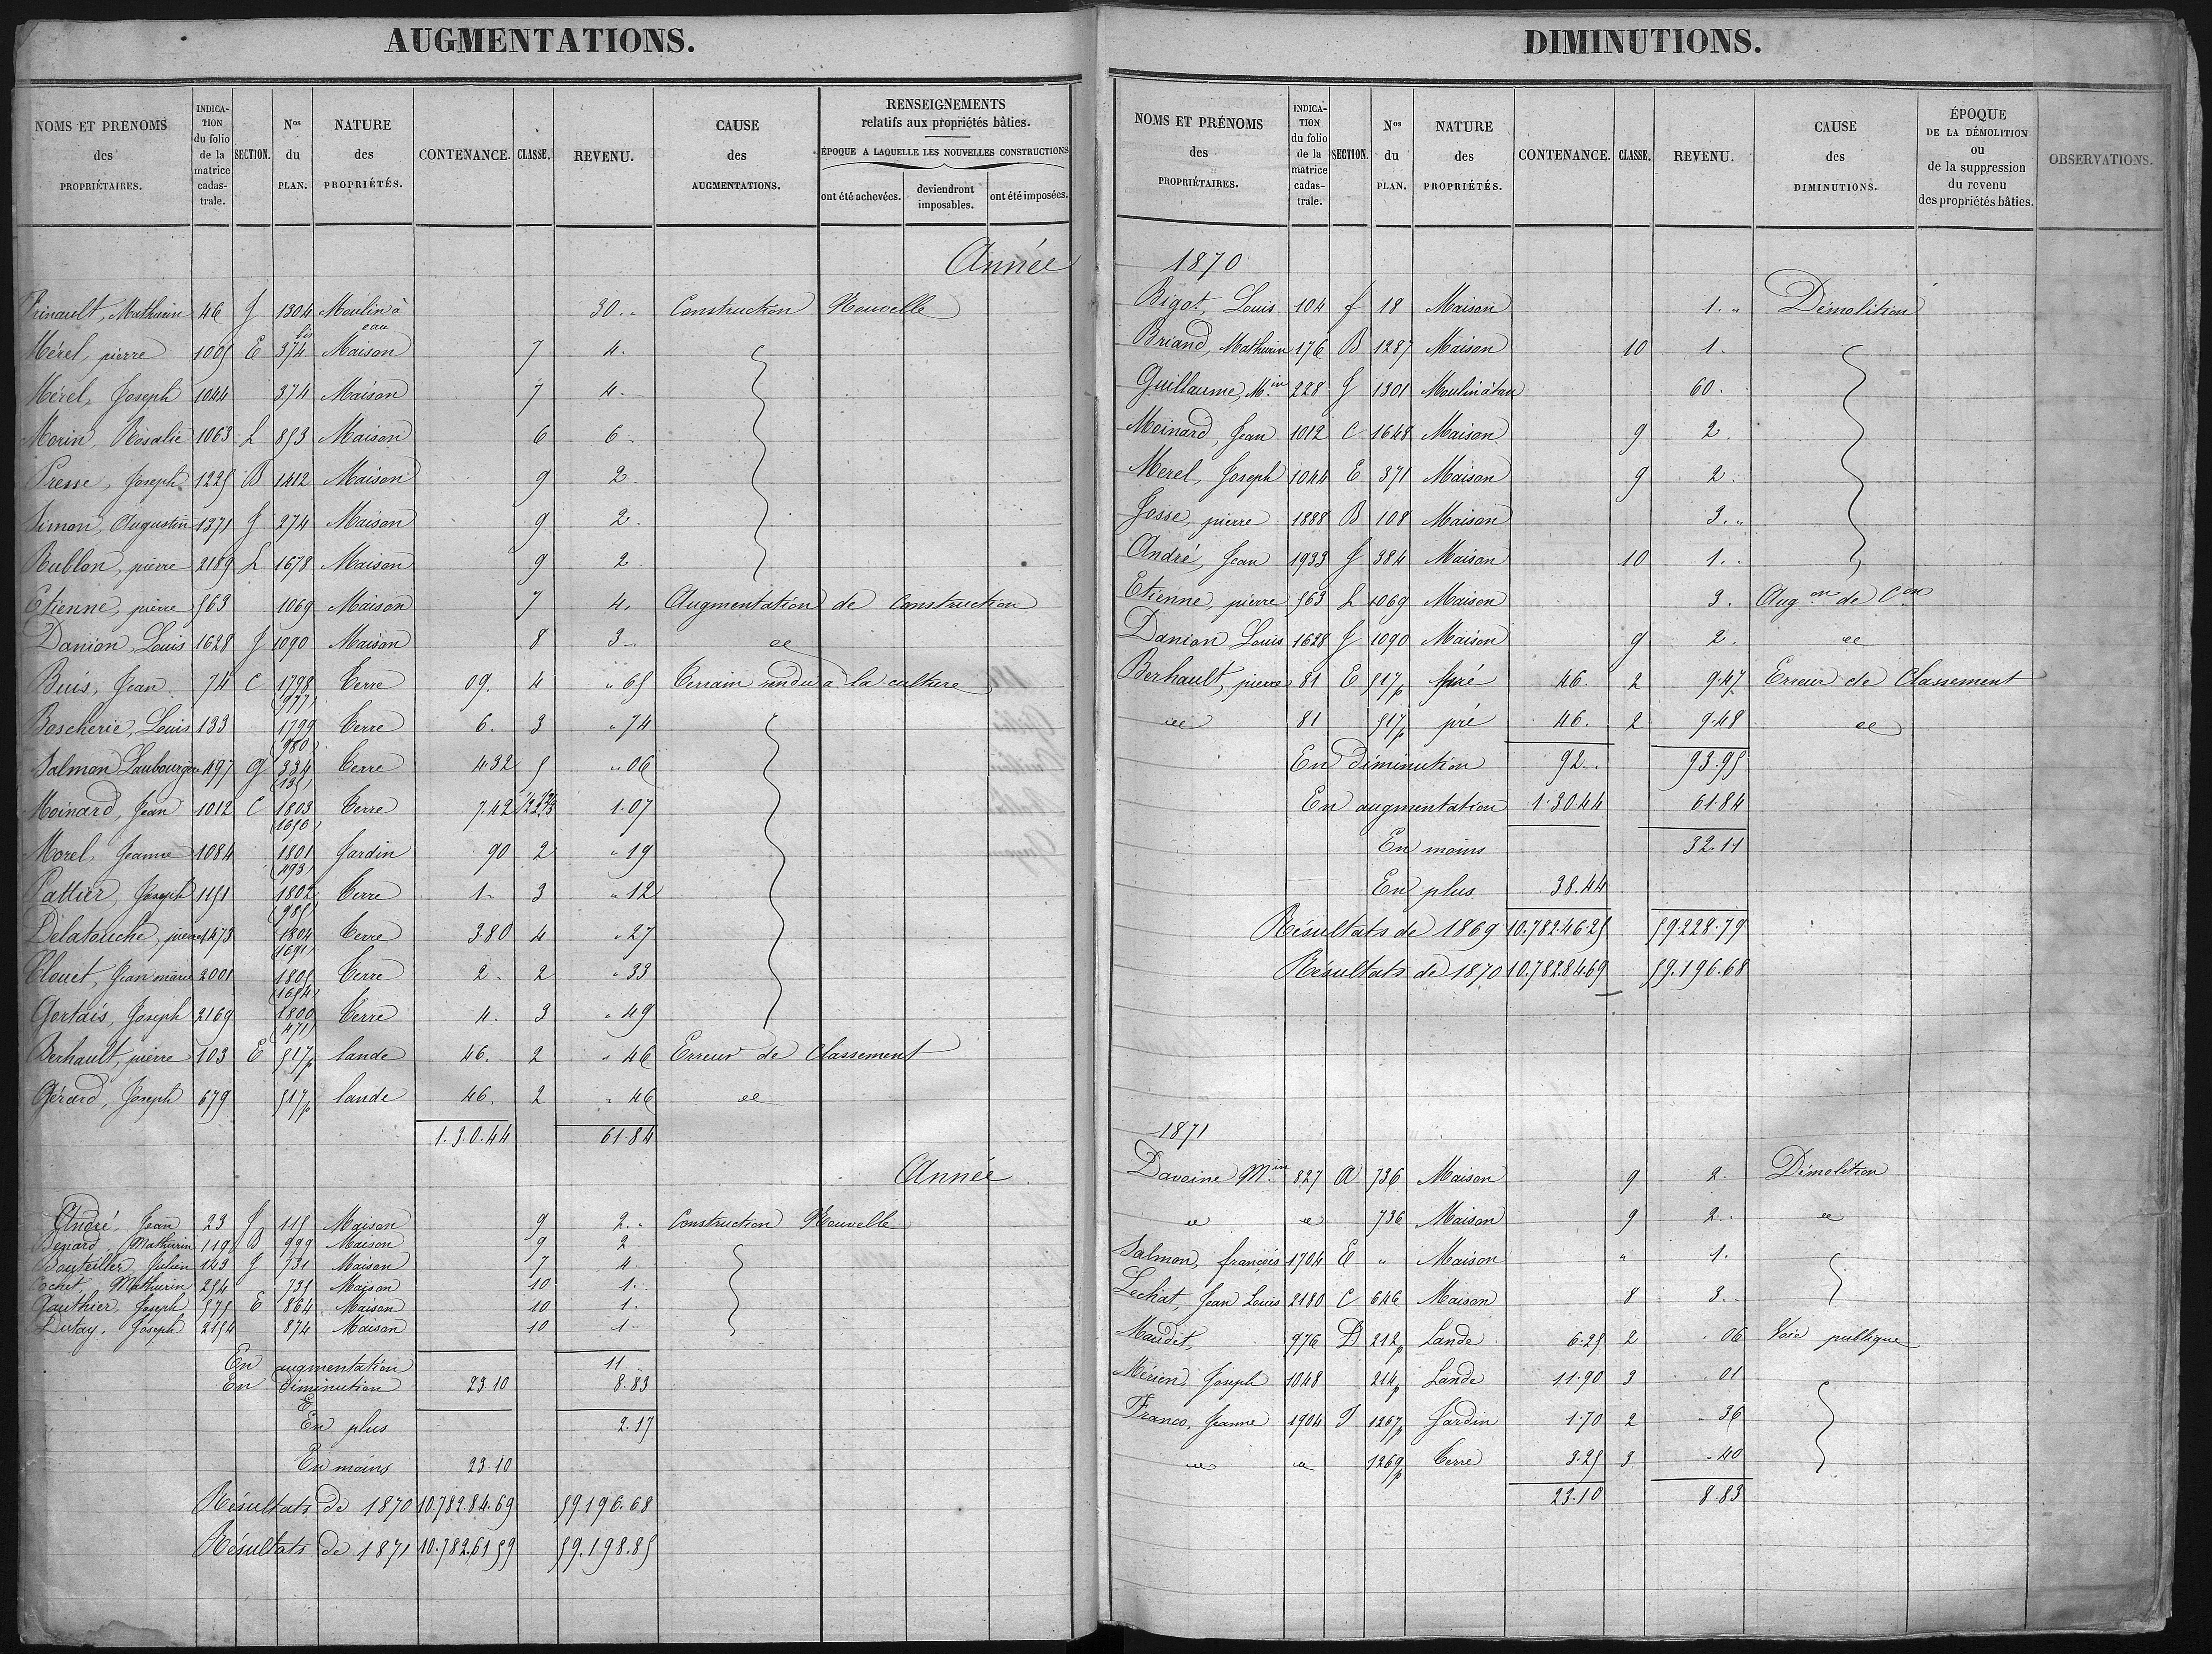 AUGMENTATIONS.
NOMS ET PRÉNOMS des PROPRIÉTAIRES. INDICATION du folio de la matrice cadastrale. SECTION. Nos du PLAN. NATURE des PROPRIÉTÉS. CONTENANCE. CLASSE. REVENU. CAUSE des AUGMENTATIONS. RENSEIGNEMENTS relatifs aux propriétés bâties. ÉPOQUE A LAQUELLE LES NOUVELLES CONSTRUCTIONS ont été achevées. deviendront imposables. ont été imposées.
Année
Mathurin 46 1304 bis Moulin à eau 30. " Construction Nouvelle
Mérel, pierre 1005 E 374 Maison 7 4.
Mérel, Joseph 1044 374 Maison 7 4
Morin, Rosalie 1063 L 853 Maison 6 6
Presse, Joseph 1225 B 1412 Maison 9 2
Simon, Augustin 1371 274 Maison 9 2.
Rublon, pierre 2189 L 1678 Maison 9 2
Etienne, pierre 563 1069 Maison 7 4. Augmentation de Construction
Danion, Louis 1628 1090 Maison 8 3
Buis, Jean 74 C 1798 (977) Terre 09. 4 " 65 Terrain rendu à la culture
Boscherie, Louis 133 1799 (980) Terre 6. 3 " 74
Salmon 334 (135) Terre 4.32 5 " 06
Moinard, Jean 1012 C 1803 (1650) Terre 7.42 1.07
Morel, Jeanne 1084 1801 (493) Jardin 90 2 " 19
Pattier, Joseph 1151 1802 (985) Terre 1. 3 " 12
Delatouche, pierre 1473 1804 (1691) Terre 3.80 4 " 27
Clouet, Jean marie 2001 1805 (1654) Terre 2. 2 " 33
Gortais, Joseph 2169 1800 (471) Terre 4. 3 " 49
Berhault, pierre 103 E 517p lande 46. 2 " 46 Erreur de Classement
Gérard, Joseph 679 517p lande 46. 2 " 46
1.30.44 61.84
Année
André, Jean 23 115 Maison 9 2. Construction Nouvelle
Benard, Mathurin 119 B 999 Maison 9 2
Bouteiller, Julien 143 731 Maison 7 4
Cochet, Mathurin 254 735 Maison 10 1.
Gauthier, Joseph 575 E 864 Maison 10 1.
Dutay, Joseph 2154 874 Maison 10 1.
En augmentation 11
En diminution 23.10 8.83
En plus 2.17
En moins 23.10
Résultats de 1870 10.782.84.69 59.196.68
Résultats de 1871 10.782.61.59 59.198.85
DIMINUTIONS.
NOMS ET PRÉNOMS des PROPRIÉTAIRES. INDICATION du folio de la matrice cadastrale. SECTION. Nos du PLAN. NATURE des PROPRIÉTÉS. CONTENANCE. CLASSE. REVENU. CAUSE des DIMINUTIONS. ÉPOQUE DE LA DÉMOLITION ou de la suppression du revenu des propriétés bâties. OBSERVATIONS.
1870
Bigot, Louis 104 f 18 Maison 1. " Démolition
Briand, Mathurin 176 B 1287 Maison 10 1.
Guillaume, Min 228 1301 Moulin à eau 60.
Moinard, Jean 1012 C 1648 Maison 9 2.
Merel, Joseph 1044 E 371 Maison 9 2.
Josse, pierre 1888 B 108 Maison 3. "
André, Jean 1933 384 Maison 10 1.
Etienne, pierre 563 L 1069 Maison 3. Augon de Con
Danion Louis 1628 1090 Maison 9 2.
Berhault, pierre 81 E 517p pré 46. 2 9.47 Erreur de Classement
81 517p pré 46. 2 9.48
En diminution 92. 93.95
En augmentation 1.30.44 61.84
En moins 32.11
En plus 38.44
Résultats de 1869 10.782.46.25 59.228.79
Résultats de 1870 10.782.84.69 59.196.68
1871
Davoine Min 827 A 736 Maison 9 2. Démolition
736 Maison 9 2.
Salmon, françois 1704 E " Maison " 1.
Lechat, Jean Louis 2180 C 646 Maison 8 3.
Maudet, 976 D 212p Lande 6.25 2 " 06 Voie publique
Mérien, Joseph 1048 214p Lande 11.90 3 " 01
Franco, Jeanne 1904 1267p Jardin 1.70 2 " 36
1269p Terre 3.25 3 " 40
23.10 8.83